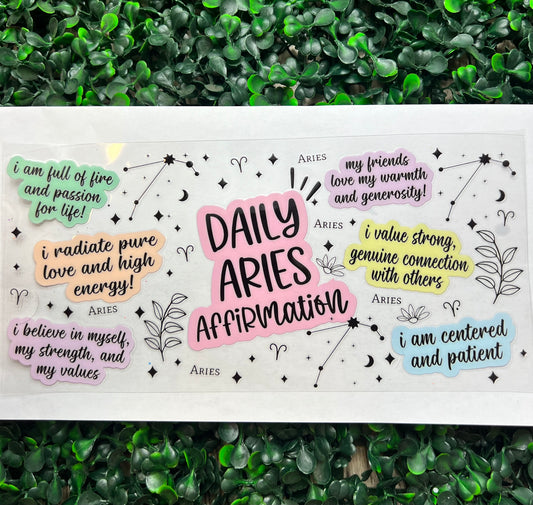 i am full of fire
and passion
for life!
i radiate pure
love and high
energy!
i believe in myself,
my strength, and
my values
DAILY
ARIES
AFFIRMATION
ARIES
ARIES
ARIES
ARIES
my friends
love my warmth
and generosity!
i value strong,
genuine connection
with others
i am centered
and patient